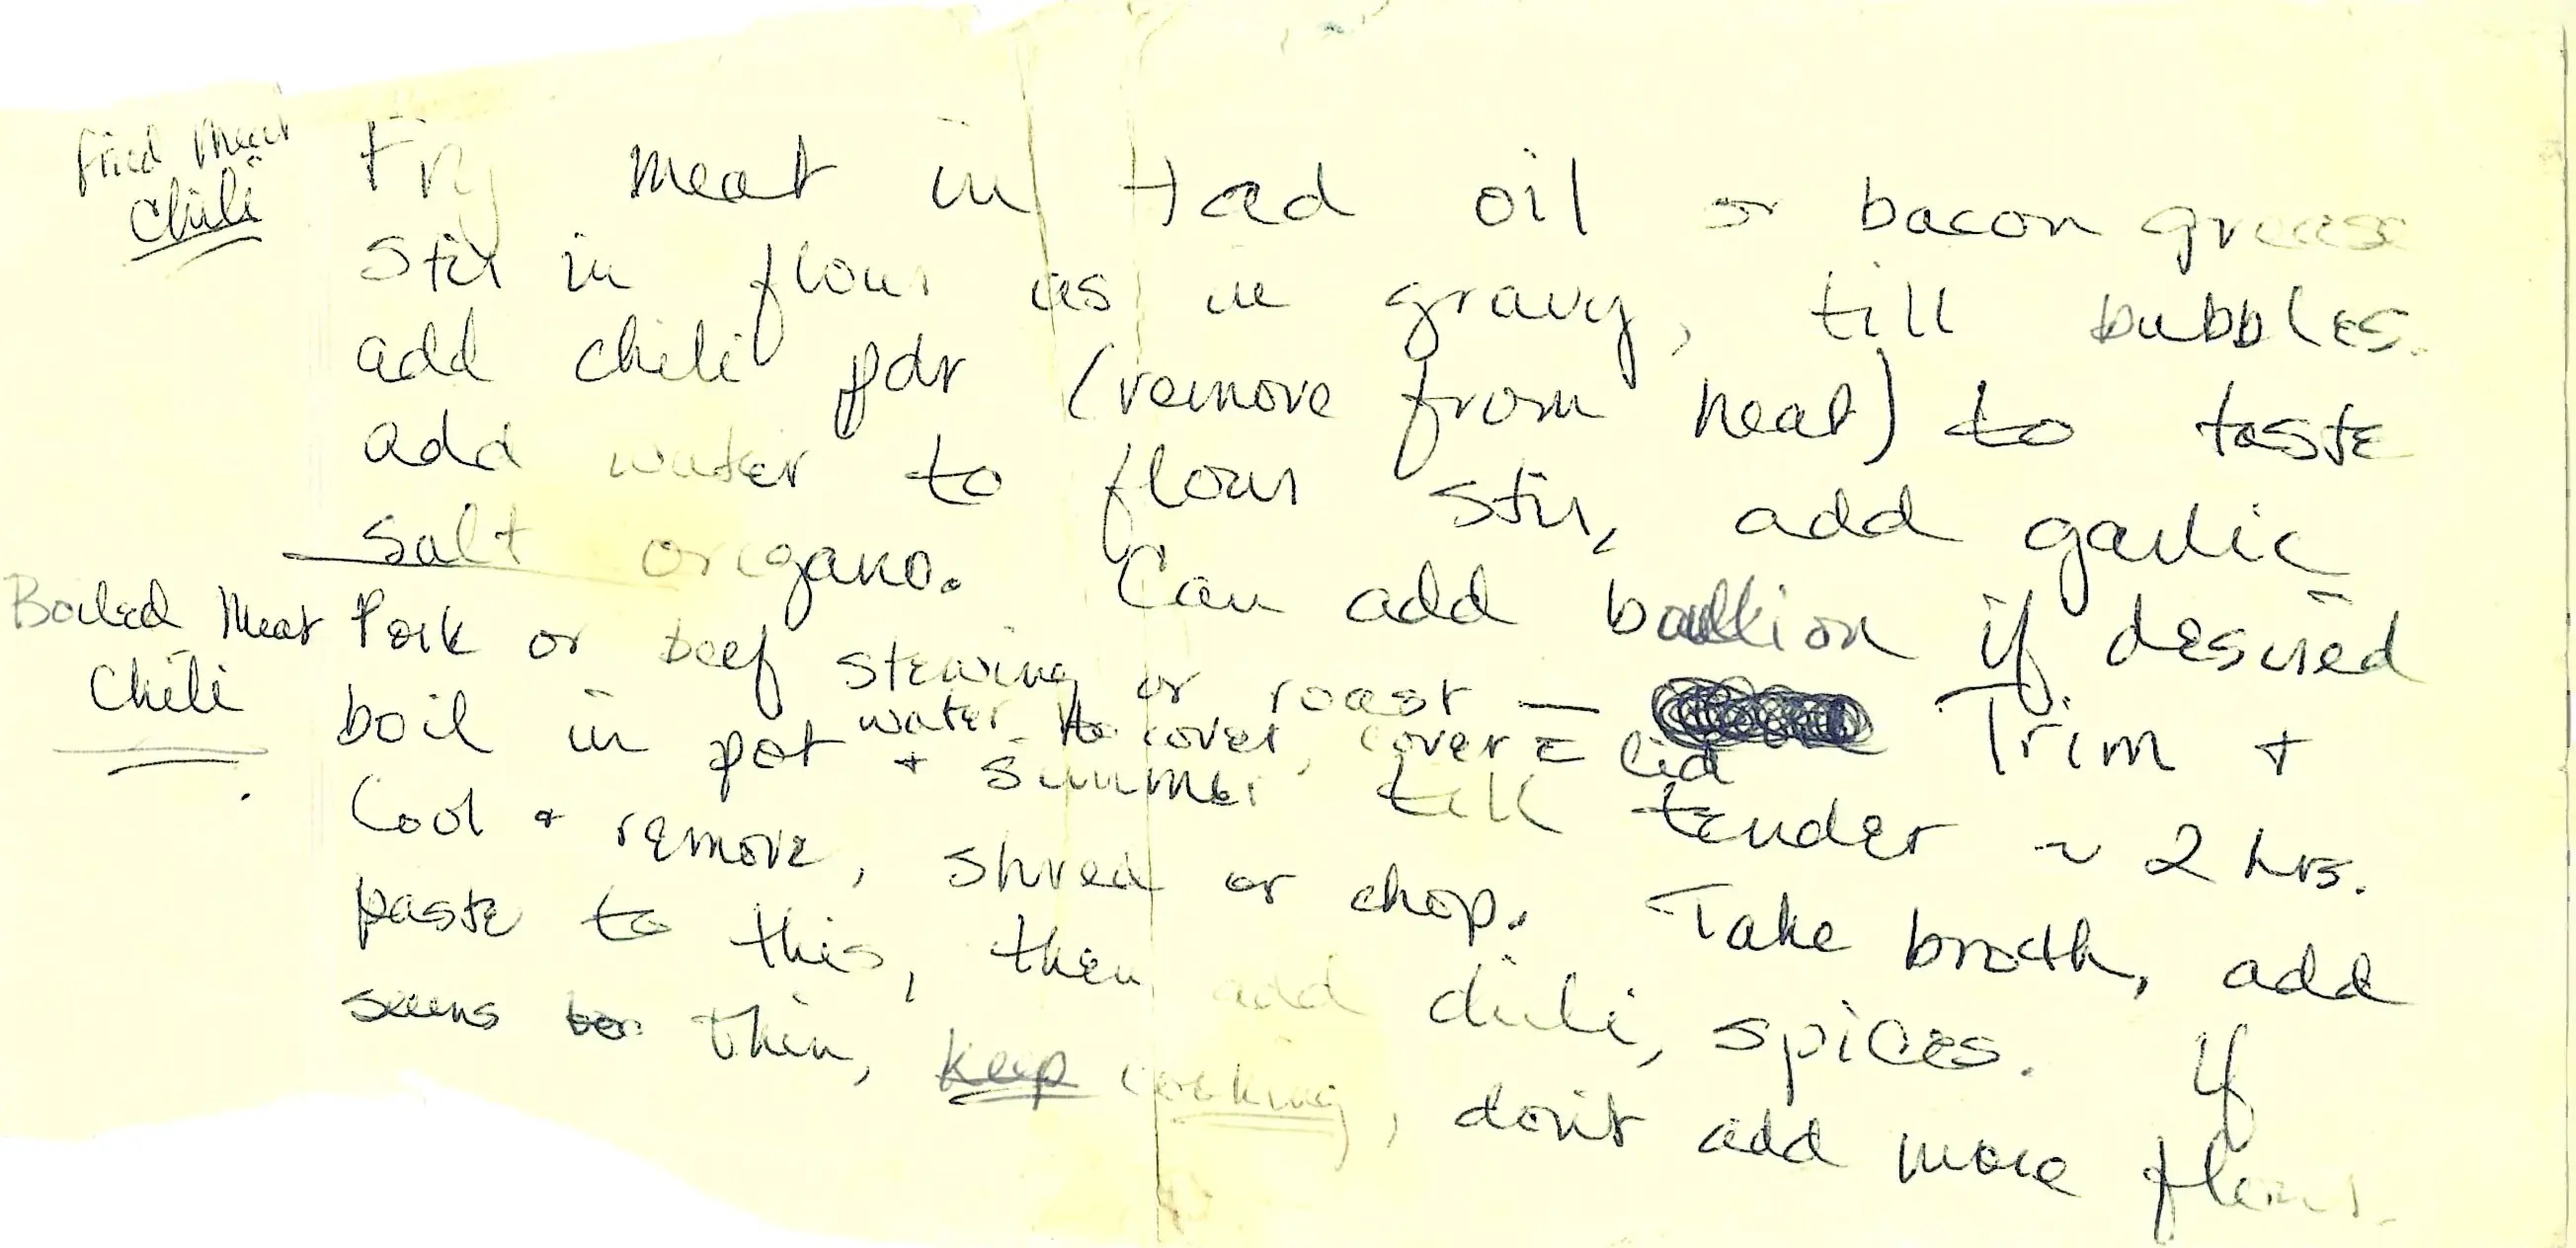 Fried Meat
Chili
Fry meat in tad oil or bacon grease
Stir in flour as in gravy, till bubbles.
add chili pdr (remove from heat) to taste
add water to flour stir, add garlic
salt oregano. Can add boullion if desired
Boiled Meat
Chili
Pork or beef stewing or roast — Trim +
boil in pot water to cover, cover c̄ lid
+ simmer till tender ~ 2 hrs.
Cool + remove, shred or chop. Take broth, add
paste to this, then add chili, spices. If
seems too thin, keep cooking, don't add more flour.